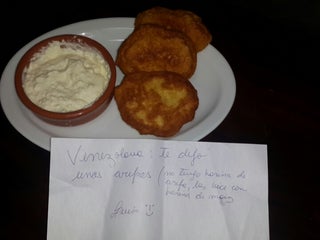 Venezolana: te dejo
unas arepas (no tengo harina de
arepa, las hice con
harina de maiz